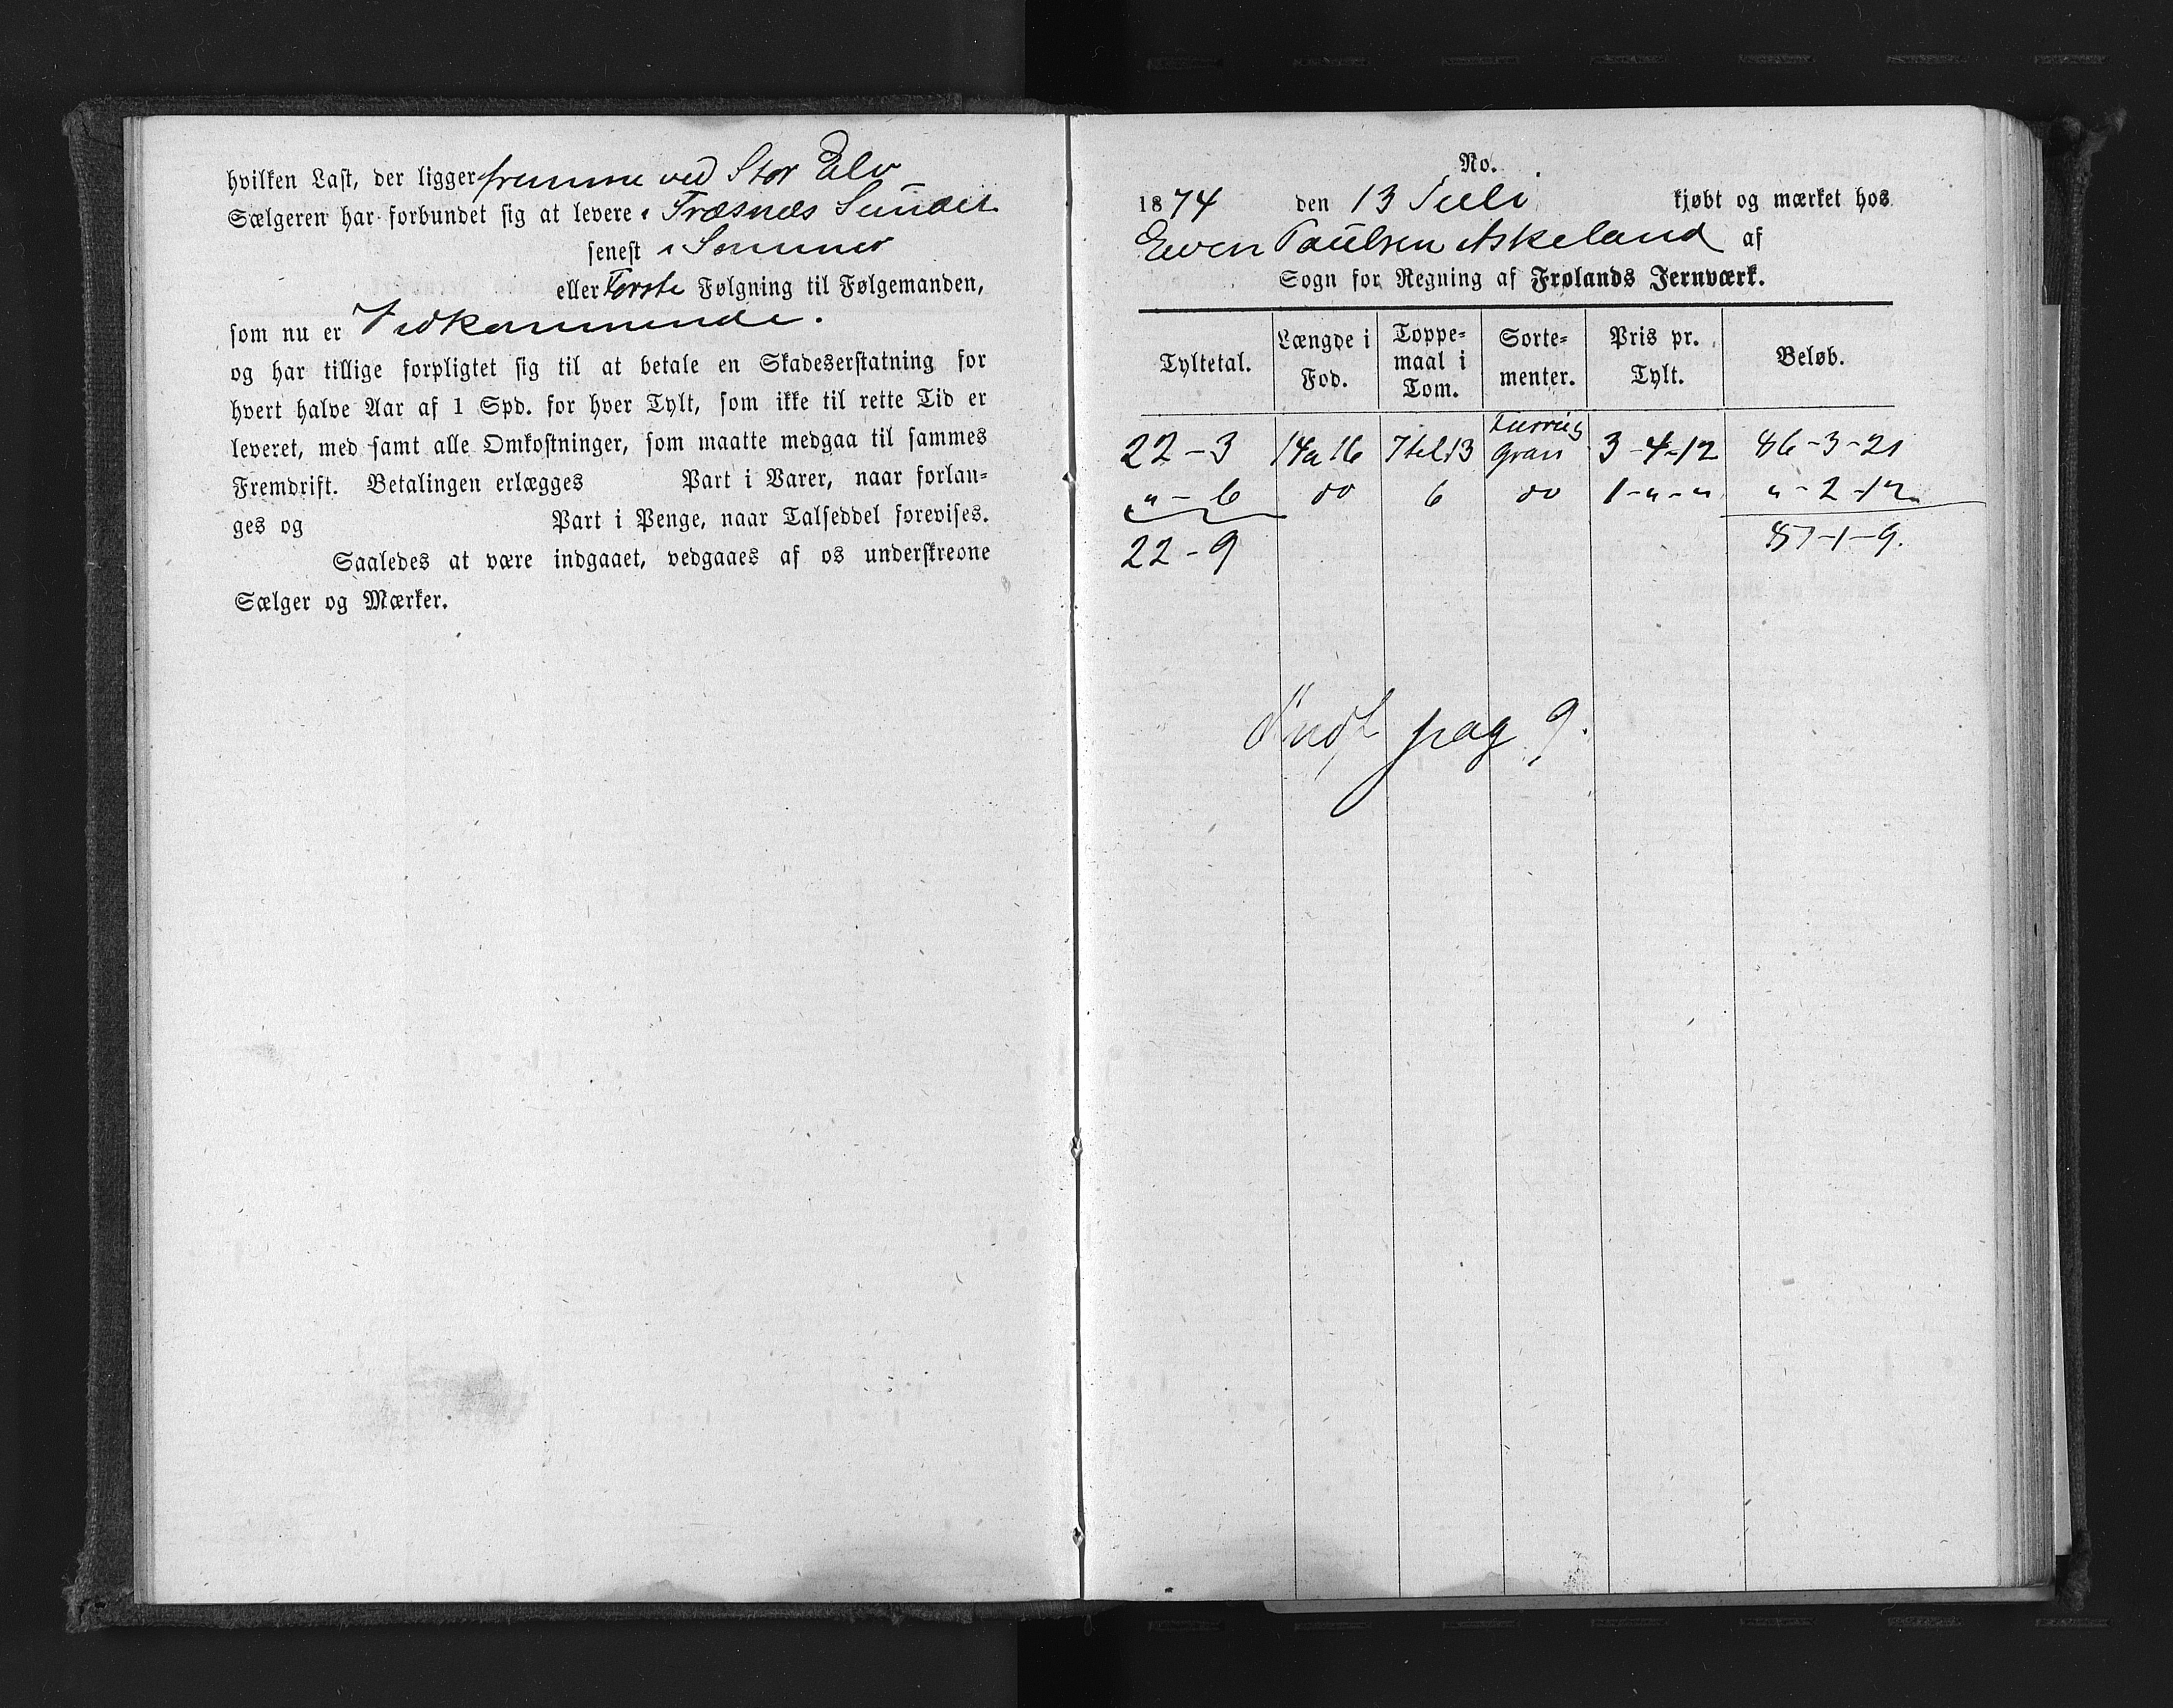 hvilken Last, der ligger fremme ved Stor Elv
Sælgeren har forbundet sig at levere i Træsnæs Sundet
senest i Sommer
eller Første Følgning til Følgemanden,
som nu er Vedkommende.
og har tillige forpligtet sig til at betale en Skadeserstatning for
hvert halve Aar af 1 Spd. for hver Tylt, som ikke til rette Tid er
leveret, med samt alle Omkostninger, som maatte medgaa til sammes
Fremdrift. Betalingen erlægges Part i Varer, naar forlan-
ges og Part i Penge, naar Talseddel forevises.
Saaledes at være indgaaet, vedgaaes af os underskrevne
Sælger og Mærker.
No.
1874 den 13 Juli kjøbt og mærket hos
Even Paulsen Askeland af
Sogn for Regning af Frolands Jernværk.
Tyltetal. Længde i Fod. Toppe-maal i Tom. Sorte-menter. Pris pr. Tylt. Beløb.
22-3 14 a 16 7 til 13 gran 3-4-12 86-3-21
"-6 do 6 do 1-"-" "-2-12
22-9 87-1-9.
Indf pag 9.